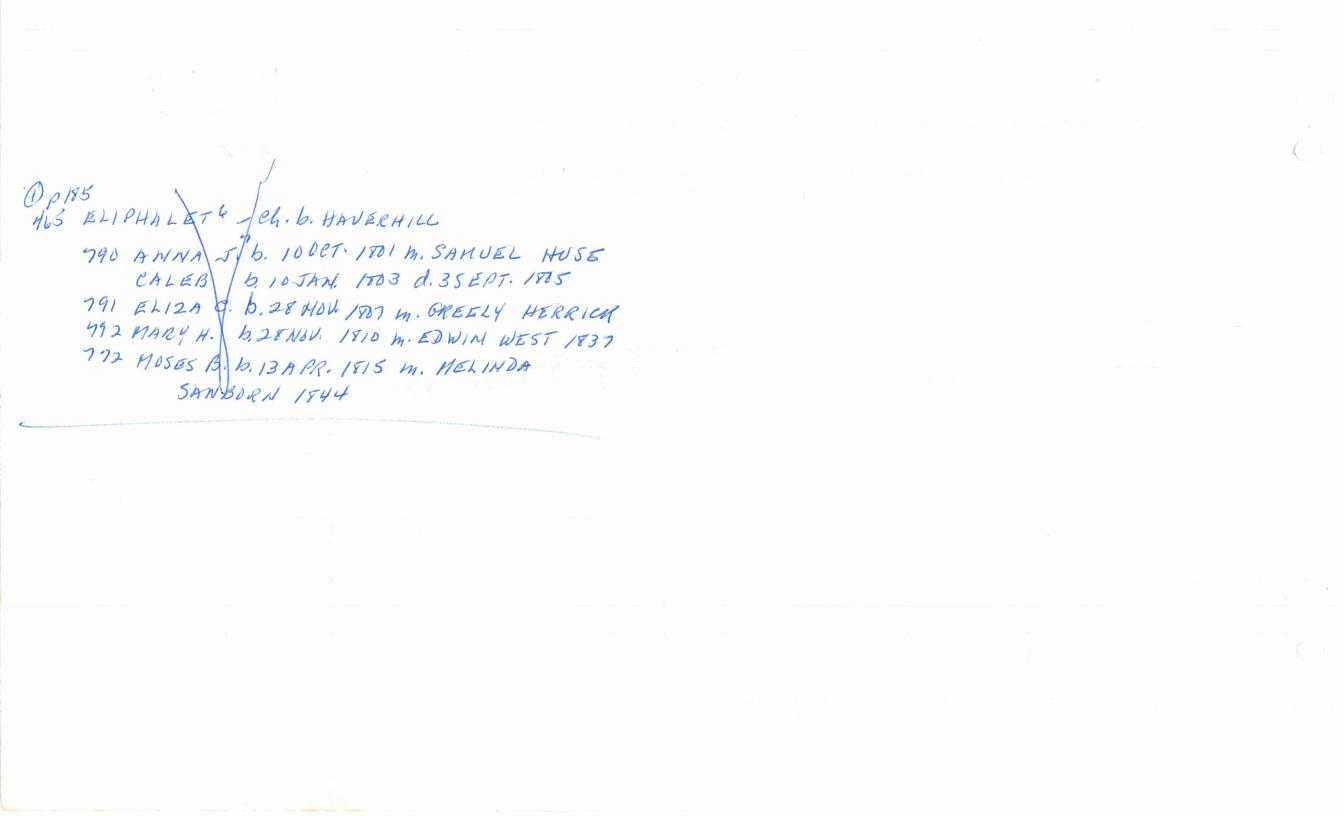 ① p185
463 ELIPHALET⁶ - Ch. b. HAVERHILL
790 ANNA J. b. 10 OCT. 1801 m. SAMUEL HUSE
CALEB b. 10 JAN. 1803 d. 3 SEPT. 1805
791 ELIZA C. b. 28 NOV. 1807 m. GREELY HERRICK
792 MARY H. b. 28 NOV. 1810 m. EDWIN WEST 1837
772 MOSES B. b. 13 APR. 1815 m. MELINDA
SANBORN 1844